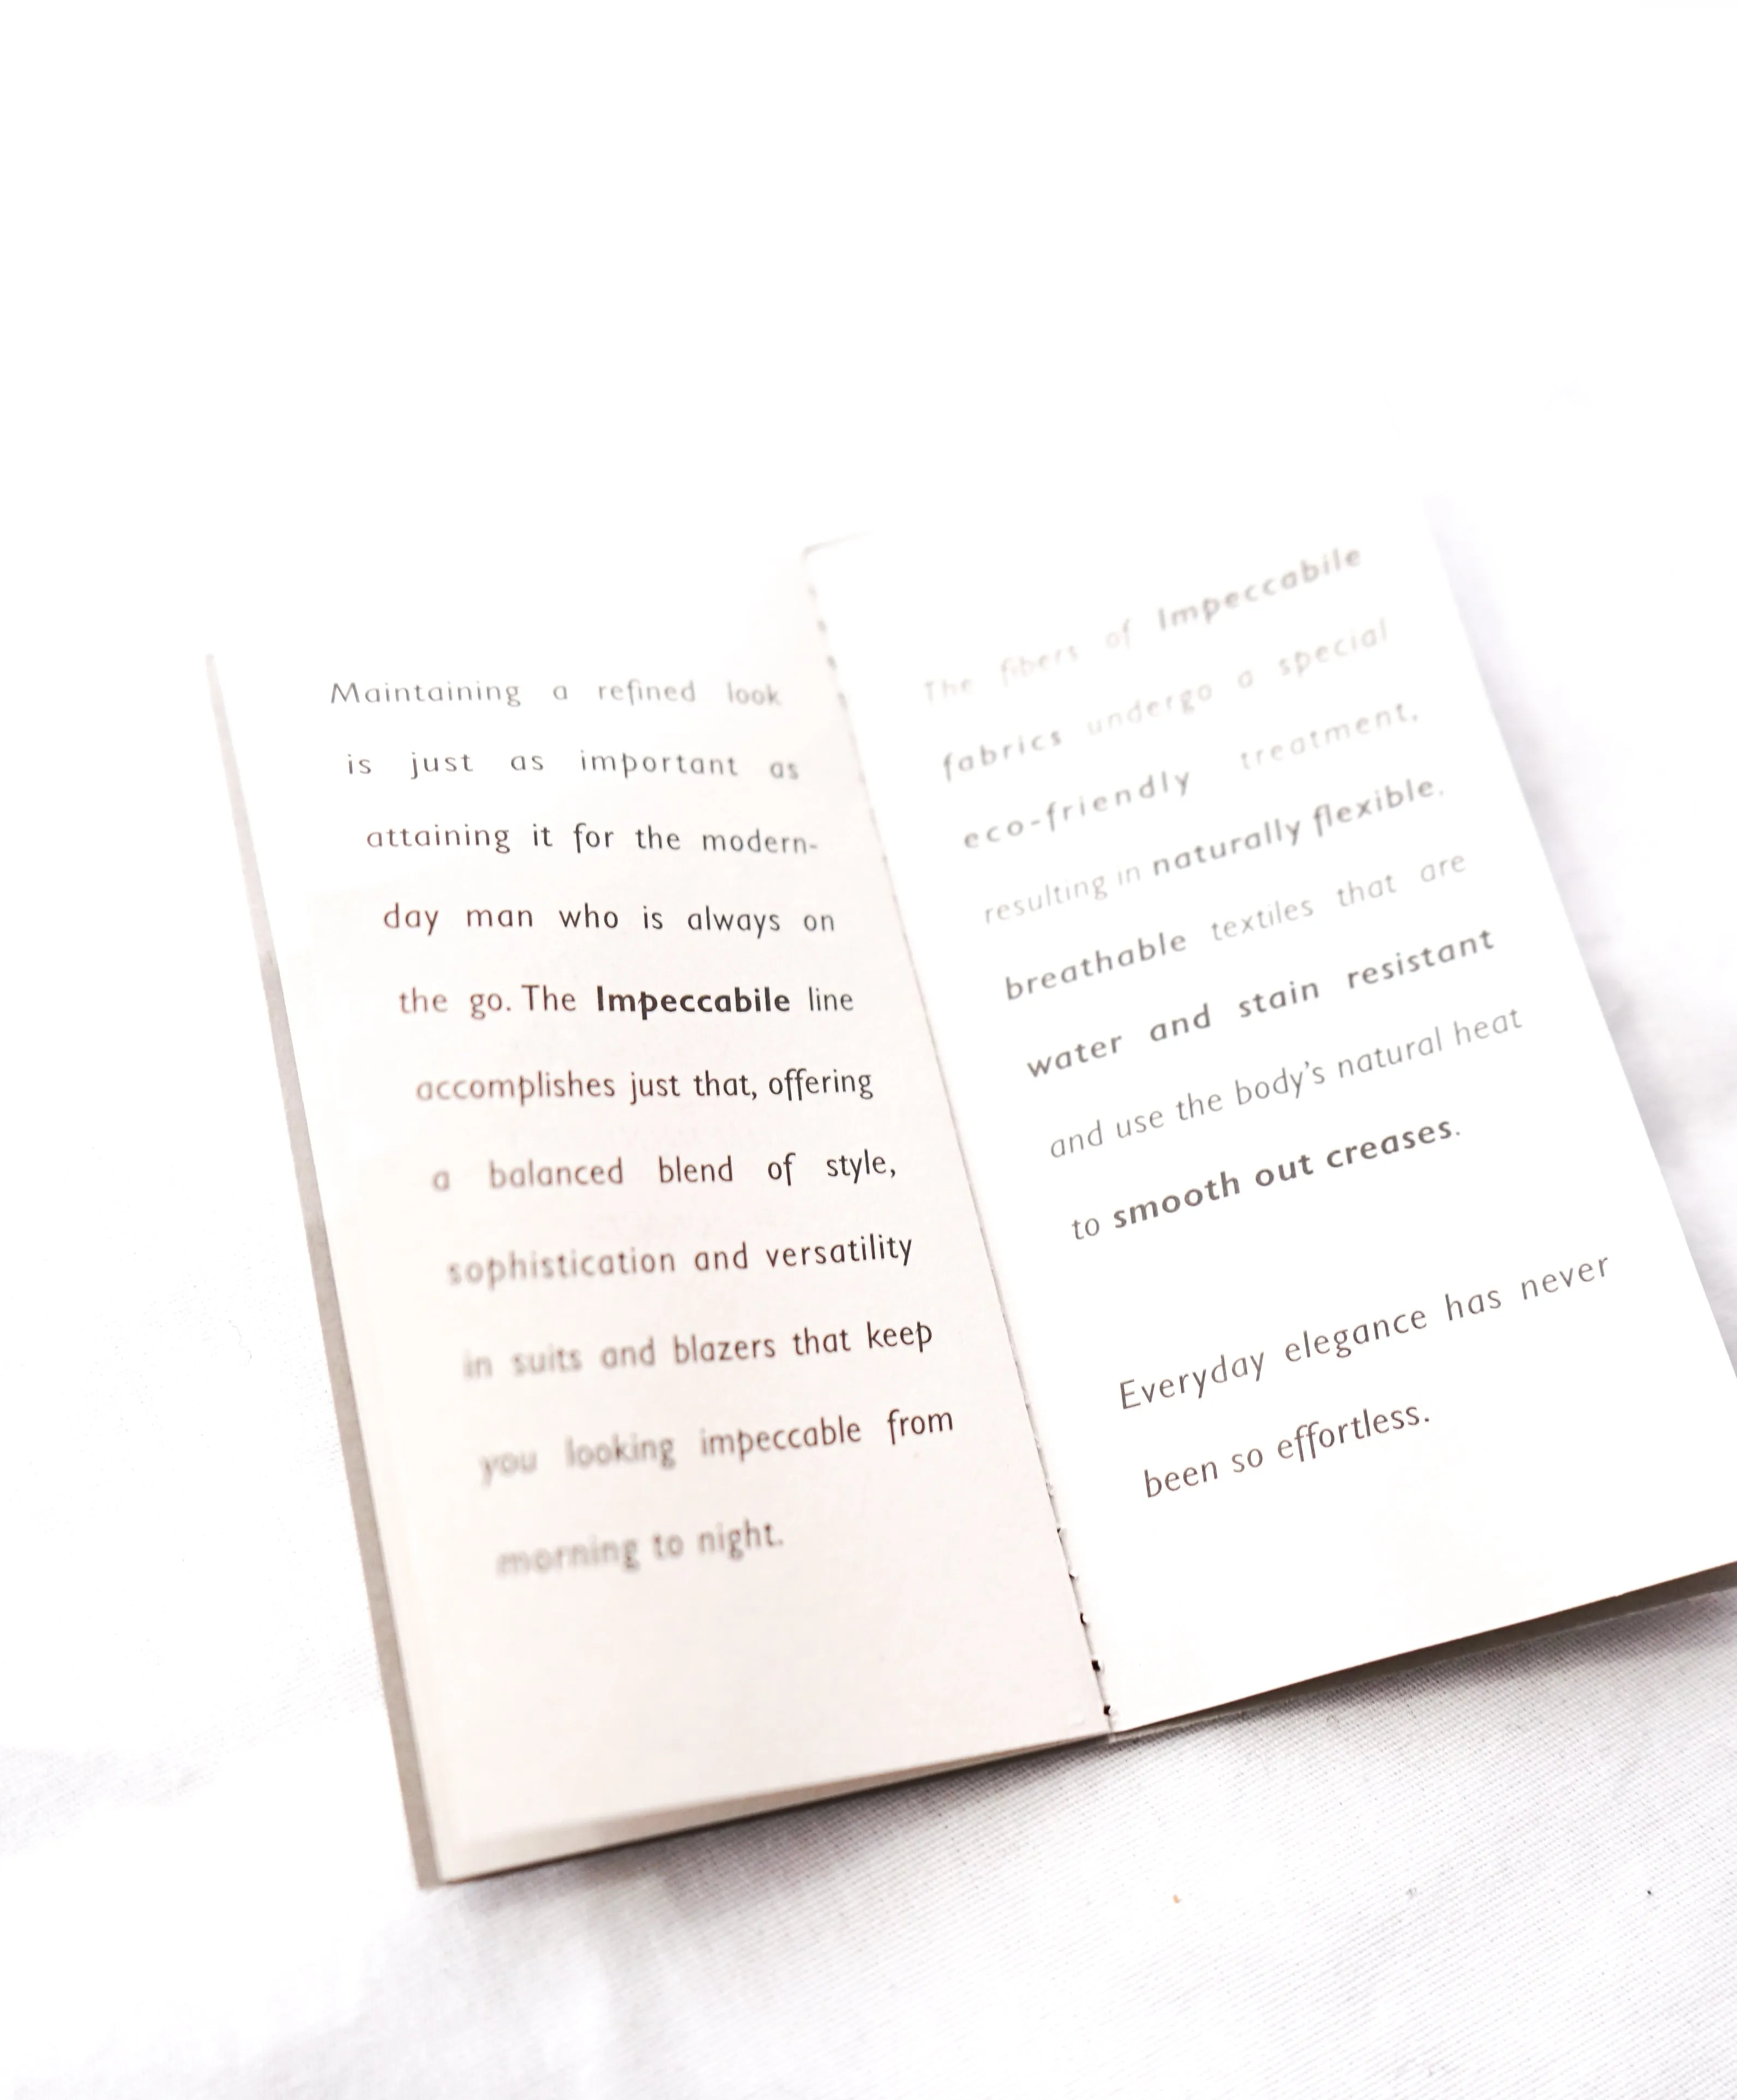 Maintaining a refined look
is just as important as
attaining it for the modern-
day man who is always on
the go. The Impeccabile line
accomplishes just that, offering
a balanced blend of style,
sophistication and versatility
in suits and blazers that keep
you looking impeccable from
morning to night.
The fibers of Impeccabile
fabrics undergo a special
eco-friendly treatment,
resulting in naturally flexible,
breathable textiles that are
water and stain resistant
and use the body's natural heat
to smooth out creases.
Everyday elegance has never
been so effortless.